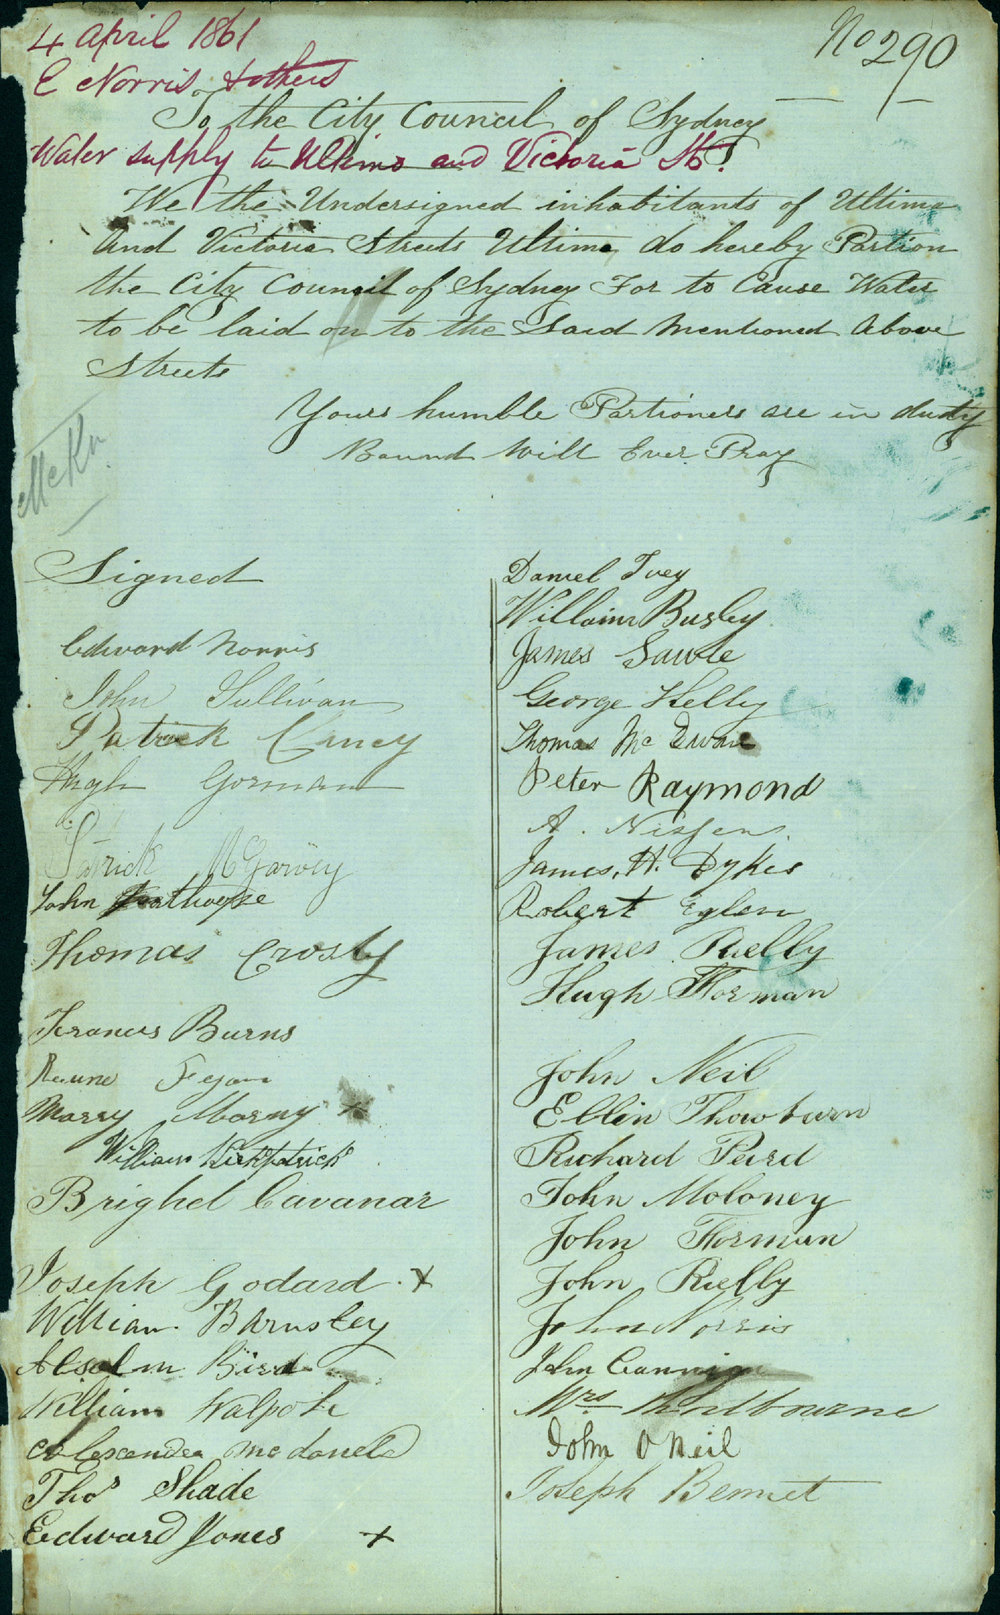 4 April 1861
No 290
E Norris & others
To the City Council of Sydney
Water supply to Ultimo and Victoria Sts.
We the Undersigned inhabitants of Ultimo
and Victoria Streets Ultimo do hereby Partion
the City Council of Sydney For to Cause Water
to be laid on to the Said Mentioned Above
Streets
Yours humble Partioners are in duty
Bound Will Ever Pray
Signed
Edward Norris
John Sullivan
Patrick
Hugh Gorman
Patrick McGarvey
John
Thomas Crosby
Francis Burns
Fegan
Marry Marny x
William Kirkpatrick
Brighel Cavanar
Joseph Godard x
William Barnsley
Absolm Bird
William Walpole
Alexander mc donell
Thos Shade
Edward Jones x
Daniel Ivey
William Busby
James Sawle
George Kelly
Thomas Mc Ewan
Peter Raymond
A. Nissens
James. H. Dykes
Robert Eglen
James Rielly
Hugh Thorman
John Neil
Ellin Thowburn
Richard Peird
John Moloney
John Thorman
John Rielly
John Norris
John Cannign
Mrs
John O Neil
Joseph Bennet